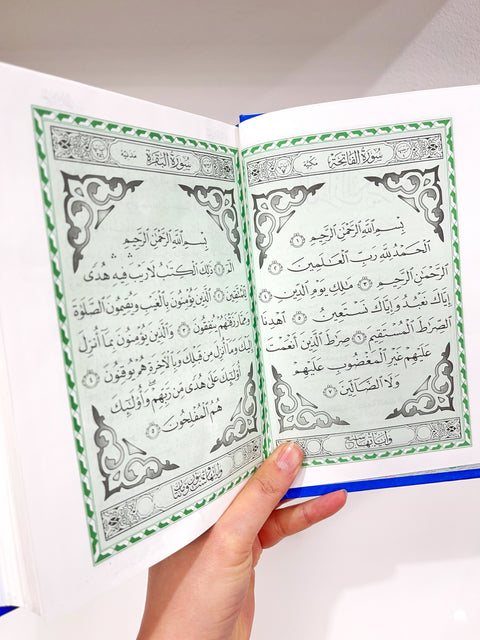 سُورَةُ الفَاتِحَةِ مَكِّيَّة
بِسْمِ اللَّهِ الرَّحْمَٰنِ الرَّحِيمِ ١
الْحَمْدُ لِلَّهِ رَبِّ الْعَٰلَمِينَ ٢
الرَّحْمَٰنِ الرَّحِيمِ ٣ مَٰلِكِ يَوْمِ الدِّينِ ٤
إِيَّاكَ نَعْبُدُ وَإِيَّاكَ نَسْتَعِينُ ٥ اهْدِنَا
الصِّرَٰطَ الْمُسْتَقِيمَ ٦ صِرَٰطَ الَّذِينَ أَنْعَمْتَ
عَلَيْهِمْ غَيْرِ الْمَغْضُوبِ عَلَيْهِمْ
وَلَا الضَّالِّينَ ٧
وَآيَاتُهَا سَبْع
سُورَةُ البَقَرَةِ مَدَنِيَّة
بِسْمِ اللَّهِ الرَّحْمَٰنِ الرَّحِيمِ
الٓمٓ ١ ذَٰلِكَ الْكِتَٰبُ لَا رَيْبَ فِيهِ هُدًى
لِّلْمُتَّقِينَ ٢ الَّذِينَ يُؤْمِنُونَ بِالْغَيْبِ وَيُقِيمُونَ الصَّلَوٰةَ
وَمِمَّا رَزَقْنَٰهُمْ يُنفِقُونَ ٣ وَالَّذِينَ يُؤْمِنُونَ بِمَا أُنزِلَ
إِلَيْكَ وَمَا أُنزِلَ مِن قَبْلِكَ وَبِالْآخِرَةِ هُمْ يُوقِنُونَ ٤
أُولَٰئِكَ عَلَىٰ هُدًى مِّن رَّبِّهِمْ وَأُولَٰئِكَ
هُمُ الْمُفْلِحُونَ ٥
وَآيَاتُهَا سِتّ وَثَمَانُون وَمِئَتَان